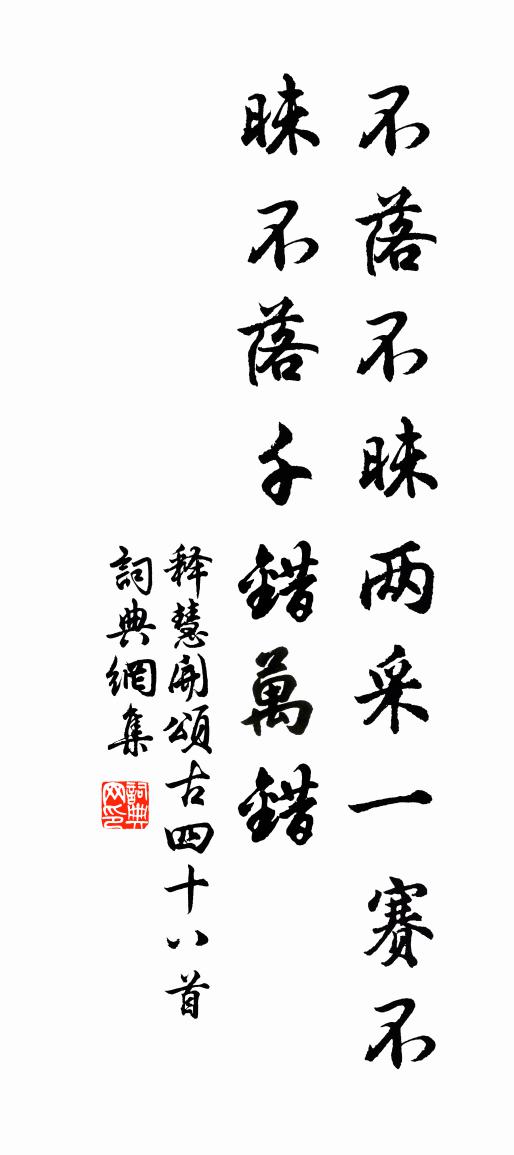 不落不昧两采一赛不
昧不落千錯萬錯
释慧開頌古四十八首
詞典網集
詞典
网印